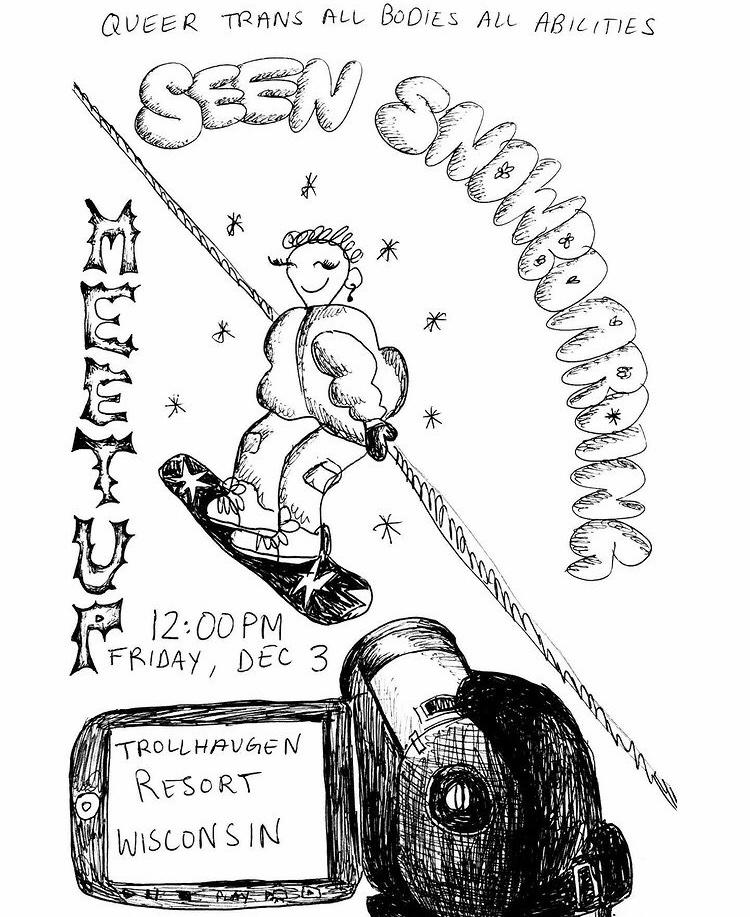 QUEER TRANS ALL BODIES ALL ABILITIES
SEEN SNOWBOARDING
MEET UP
12:00PM
FRIDAY, DEC 3
TROLLHAUGEN
RESORT
WISCONSIN
PLAY